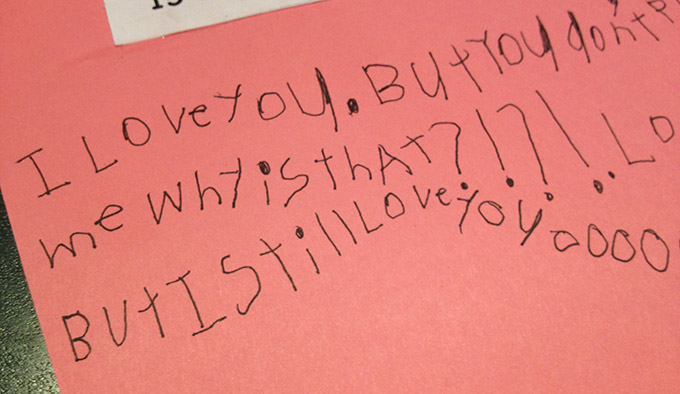 I LOVE YOU. BUt YOU don't
me WhY is thAt?!?!.. LO
BUt I Still LOVe YOU oooo